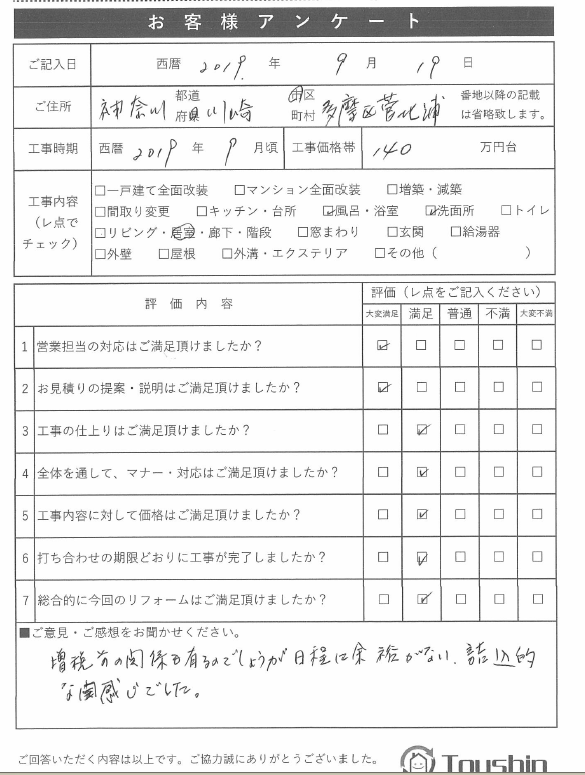 お客様アンケート
ご記入日 西暦 2019. 年 9 月 19 日
ご住所 神奈川 都道府県 川崎 市区町村 多摩区菅北浦 番地以降の記載は省略致します。
工事時期 西暦 2019 年 9 月頃 工事価格帯 140 万円台
工事内容（レ点でチェック）
□一戸建て全面改装 □マンション全面改装 □増築・減築
□間取り変更 □キッチン・台所 ☑風呂・浴室 ☑洗面所 □トイレ
□リビング・居室・廊下・階段 □窓まわり □玄関 □給湯器
□外壁 □屋根 □外溝・エクステリア □その他（ ）
評価内容 評価（レ点をご記入ください）
大変満足 満足 普通 不満 大変不満
1 営業担当の対応はご満足頂けましたか？ ☑ □ □ □ □
2 お見積りの提案・説明はご満足頂けましたか？ ☑ □ □ □ □
3 工事の仕上りはご満足頂けましたか？ □ ☑ □ □ □
4 全体を通して、マナー・対応はご満足頂けましたか？ □ ☑ □ □ □
5 工事内容に対して価格はご満足頂けましたか？ □ ☑ □ □ □
6 打ち合わせの期限どおりに工事が完了しましたか？ □ ☑ □ □ □
7 総合的に今回のリフォームはご満足頂けましたか？ □ ☑ □ □ □
■ご意見・ご感想をお聞かせください。
増税前の関係も有るのでしょうが日程に余裕がない、詰込的
な感じでした。
ご回答いただく内容は以上です。ご協力誠にありがとうございました。
Toushin